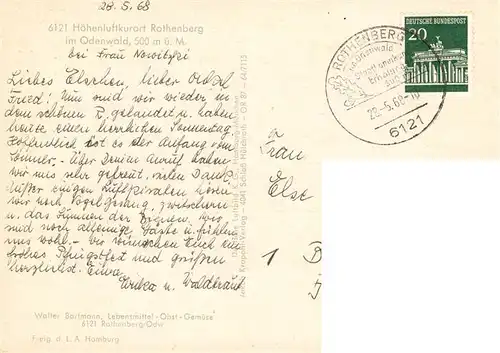 28.5.68
6121 Höhenluftkurort Rothenberg
im Odenwald, 500 m ü. M.
bei Frau Nowitzki
Liebes Elschen, lieber Onkel
Fried! Nun sind wir wieder in
dem schönen R. gelandet u. haben
heute einen herrlichen Sonnentag.
Hoffentlich ist es der Anfang vom
Sommer. - Über Deinen Anruf haben
wir uns sehr gefreut, vielen Dank.
Außer einigen hören
wir noch Vogelgesang, zwitschern
u. das Summen der Bienen. Wir
sind noch alleinige Gäste u. fühlen
uns wohl. - Wir wünschen Euch ein
frohes Pfingstfest und grüßen
herzlichst. Eure
Erika u. Waldtraut
Walter Bartmann, Lebensmittel-Obst-Gemüse
6121 Rothenberg/Odw
Freig. d. L. A. Hamburg
DEUTSCHE BUNDESPOST
20
ROTHENBERG
Odenwald
28.-5.68-10
6121
Frau
Else
1